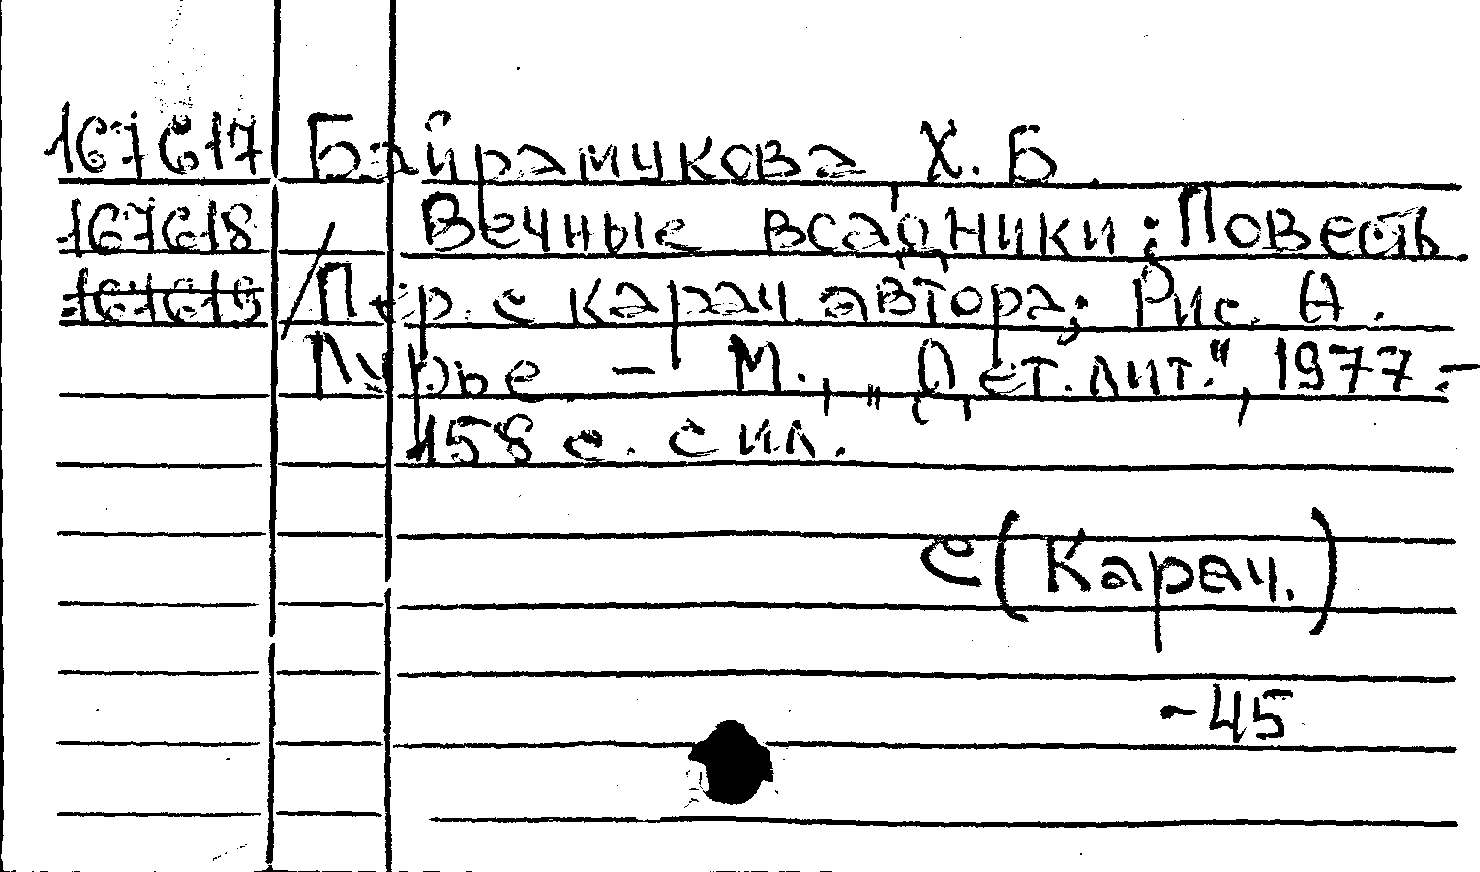 167617 Байрамукова Х. Б.
167618 Вечные всадники: Повесть
167619 / Пер. с карач. автора; Рис. А.
Лурье – М., „Дет. лит.", 1977.–
158 с. с ил.
С(Карач.)
-45